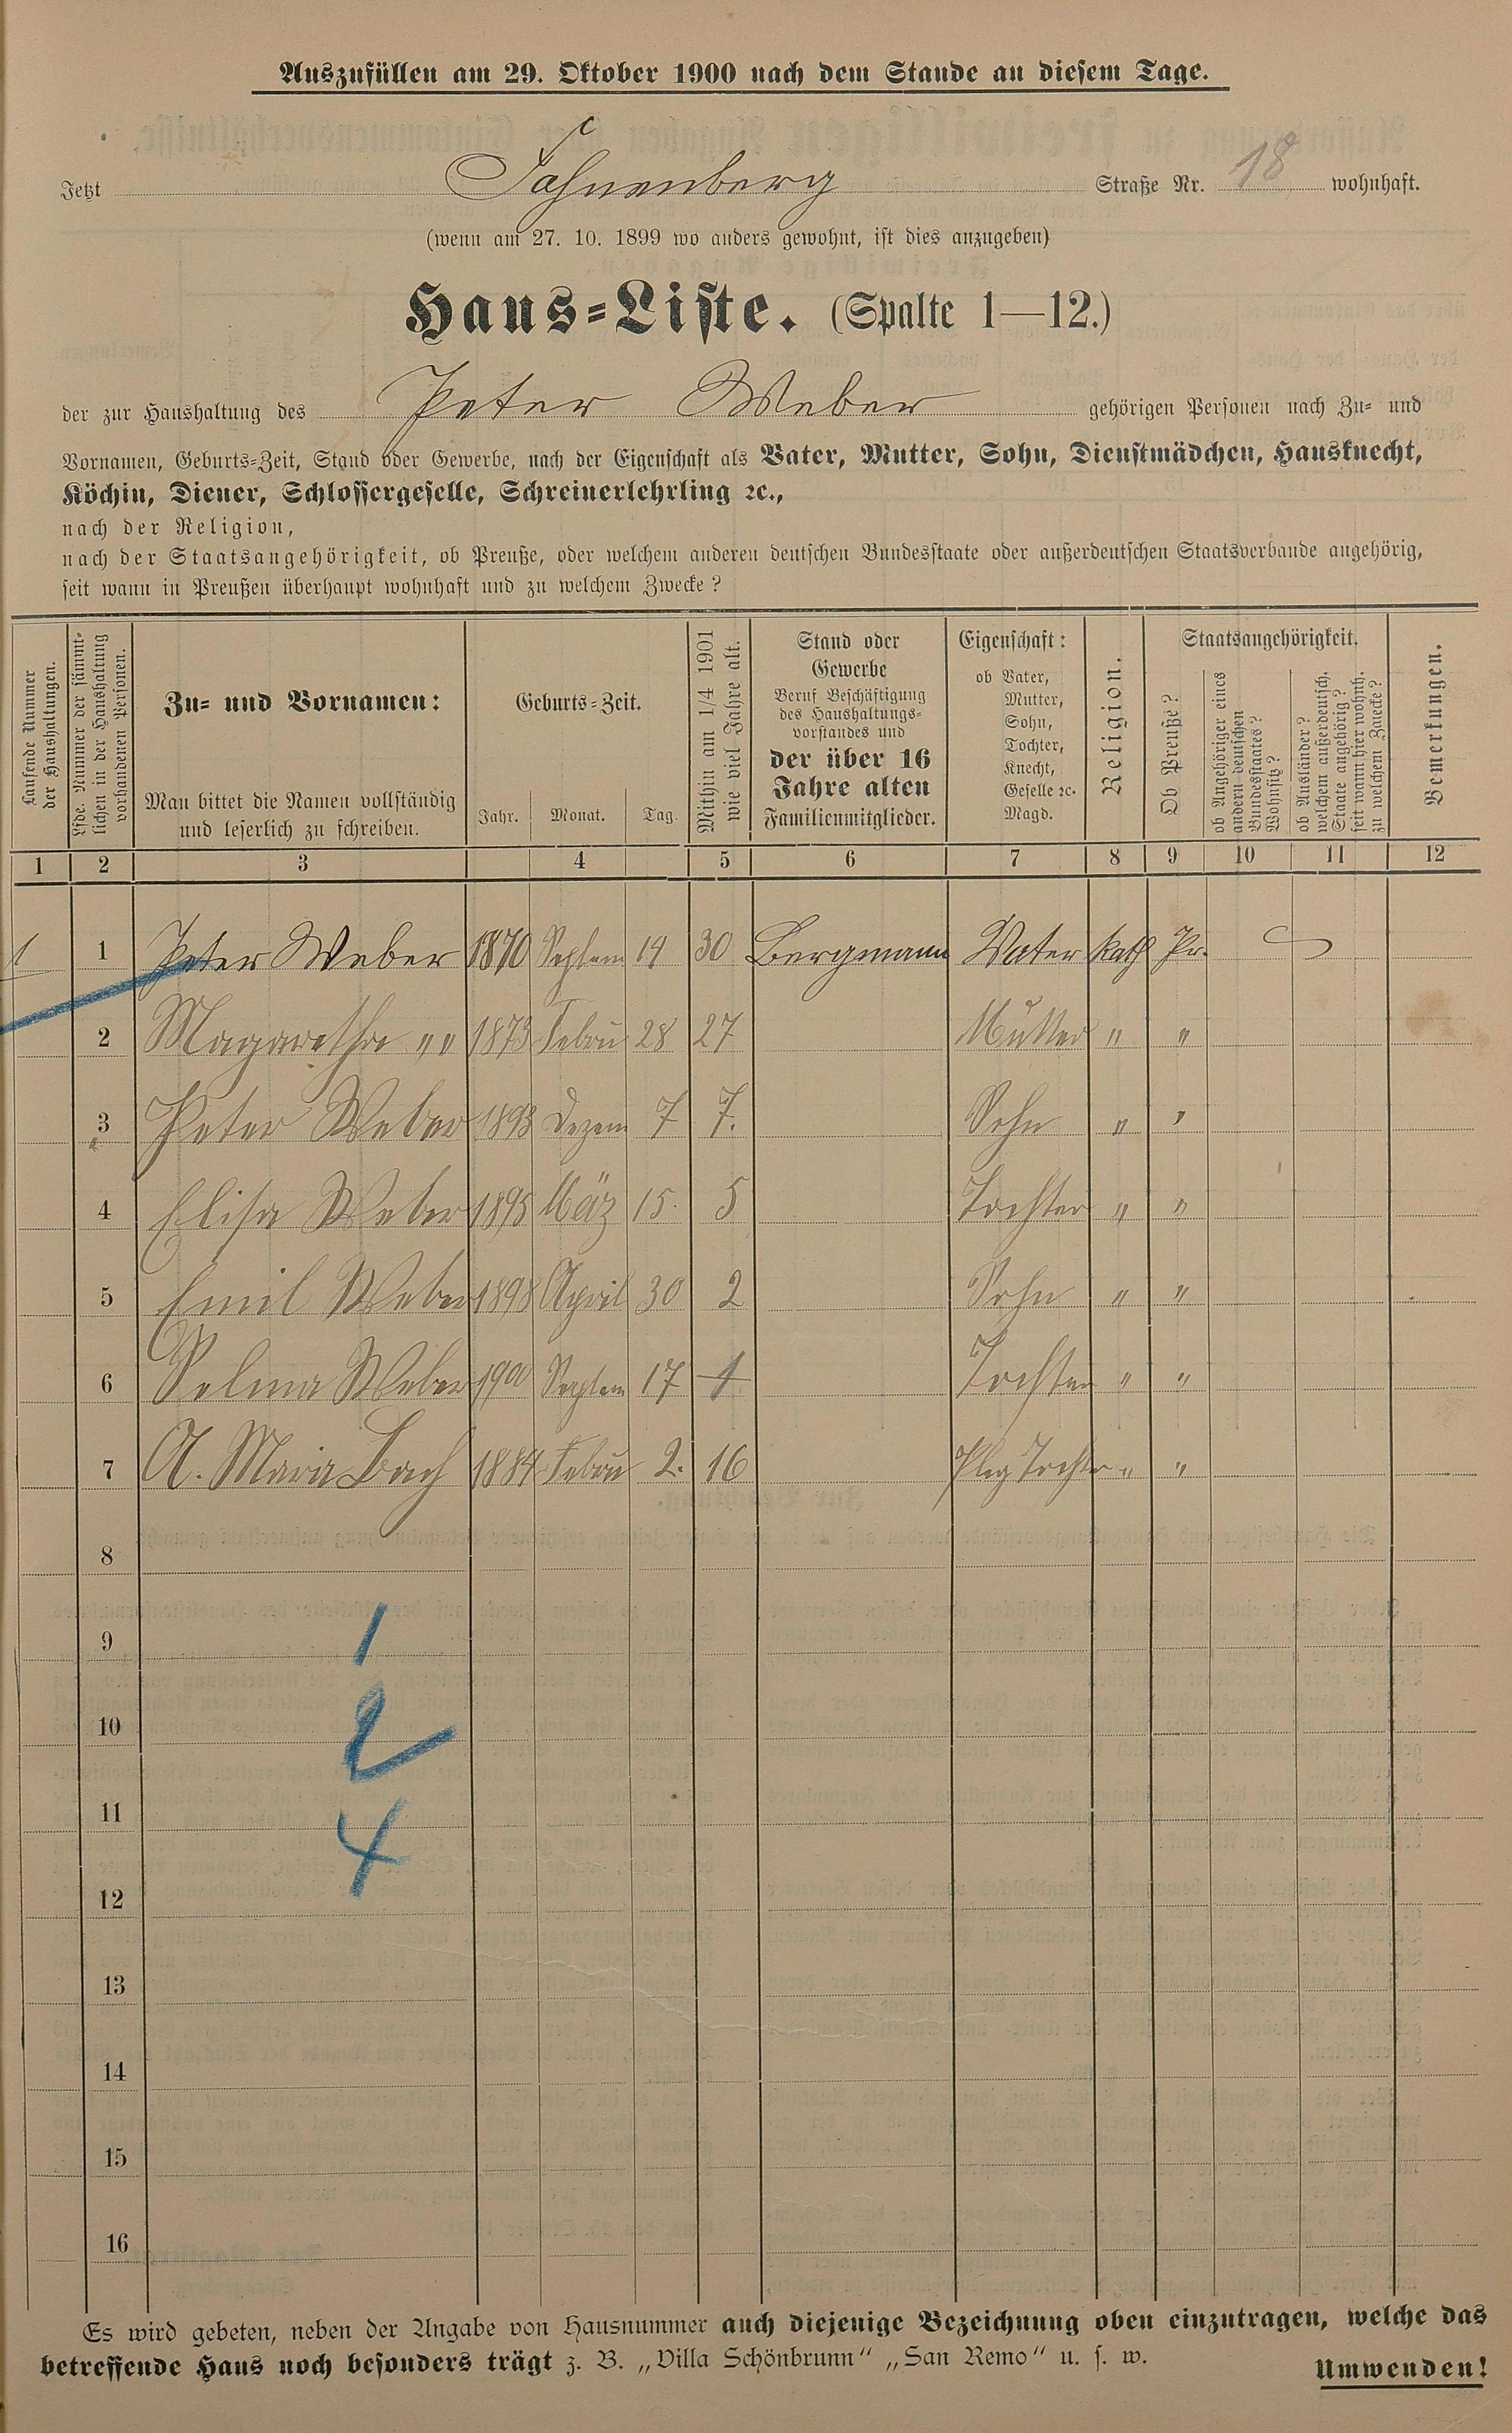 Auszufüllen am 29. Oktober 1900 nach dem Stande an diesem Tage.
Jetzt Fahnenberg Straße Nr. 18 wohnhaft.
(wenn am 27. 10. 1899 wo anders gewohnt, ist dies anzugeben)
Haus=Liste. (Spalte 1—12.)
der zur Haushaltung des Peter Weber gehörigen Personen nach Zu= und
Vornamen, Geburts=Zeit, Stand oder Gewerbe, nach der Eigenschaft als Vater, Mutter, Sohn, Dienstmädchen, Hausknecht,
Köchin, Diener, Schlossergeselle, Schreinerlehrling ꝛc.,
nach der Religion,
nach der Staatsangehörigkeit, ob Preuße, oder welchem anderen deutschen Bundesstaate oder außerdeutschen Staatsverbande angehörig,
seit wann in Preußen überhaupt wohnhaft und zu welchem Zwecke?
Laufende Nummer
der Haushaltungen.
Lfde. Nummer der sämmt-
lichen in der Haushaltung
vorhandenen Personen.
Zu= und Vornamen:
Man bittet die Namen vollständig
und leserlich zu schreiben.
Geburts=Zeit.
Jahr. Monat. Tag.
Mithin am 1/4 1901
wie viel Jahre alt.
Stand oder
Gewerbe
Beruf Beschäftigung
des Haushaltungs=
vorstandes und
der über 16
Jahre alten
Familienmitglieder.
Eigenschaft:
ob Vater,
Mutter,
Sohn,
Tochter,
Knecht,
Geselle ꝛc.
Magd.
Religion.
Staatsangehörigkeit.
Ob Preuße?
ob Angehöriger eines
andern deutschen
Bundesstaates?
Wohnsitz?
ob Ausländer?
welchem außerdeutsch.
Staate angehörig?
seit wann hier wohnh.
zu welchem Zwecke?
Bemerkungen.
1 2 3 4 5 6 7 8 9 10 11 12
1 1 Peter Weber 1870 Septem 14 30 Bergmann Vater Kath Pr.
2 Magaretha „ „ 1873 Febru 28 27 Mutter „ „
3 Peter Weber 1893 Dezem 7 7. Sohn „ „
4 Elisa Weber 1895 Mäz 15. 5 Tochter „ „
5 Emil Weber 1898 April 30 2 Sohn „ „
6 Selma Weber 1900 Septem 17 1 Tochter „ „
7 A. Maria Bach 1884 Febru 2. 16 Pleg Tochter „ „
8
9
1
10
2
11
4
12
13
14
15
16
Es wird gebeten, neben der Angabe von Hausnummer auch diejenige Bezeichnung oben einzutragen, welche das
betreffende Haus noch besonders trägt z. B. „Villa Schönbrunn“ „San Remo“ u. s. w.
Umwenden!